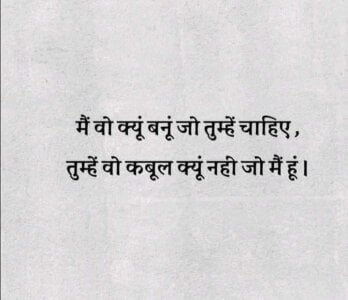 मैं वो क्यूं बनूं जो तुम्हें चाहिए,
तुम्हें वो कबूल क्यूं नही जो मैं हूं।